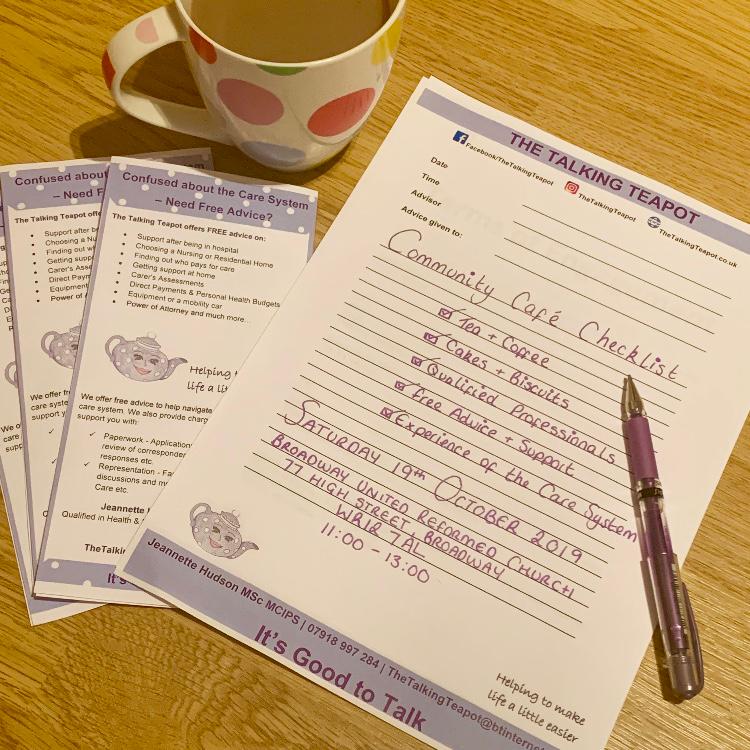 Confused about
– Need F
The Talking Teapot offe
Support after be
Choosing a Nu
Finding out wh
Getting suppo
Carer's Asses
Direct Paym
Equipment
Power of A
We offer fr
care syste
support y
Confused about the Care System
– Need Free Advice?
The Talking Teapot offers FREE advice on:
Support after being in hospital
Choosing a Nursing or Residential Home
Finding out who pays for care
Getting support at home
Carer's Assessments
Direct Payments & Personal Health Budgets
Equipment or a mobility car
Power of Attorney and much more...
Helping t
life a li
We offer free advice to help navigate
care system. We also provide charg
support you with:
✓ Paperwork - Application
review of correspondenc
responses etc.
✓ Representation - Fac
discussions and me
Care etc.
Jeannette H
Qualified in Health &
TheTalki
It's
THE TALKING TEAPOT
Facebook/TheTalkingTeapot TheTalkingTeapot TheTalkingTeapot.co.uk
Date
Time
Advisor
Advice given to:
Community Café Checklist
☑ Tea + Coffee
☑ Cakes + Biscuits
☑ Qualified Professionals
☑ Free Advice + Support
☑ Experience of the Care System
SATURDAY 19th OCTOBER 2019
BROADWAY UNITED REFORMED CHURCH
77 HIGH STREET, BROADWAY
WR12 7AL
11:00 - 13:00
Helping to make
life a little easier
Jeannette Hudson MSc MCIPS | 07918 997 284 | TheTalkingTeapot@btinterne
It's Good to Talk